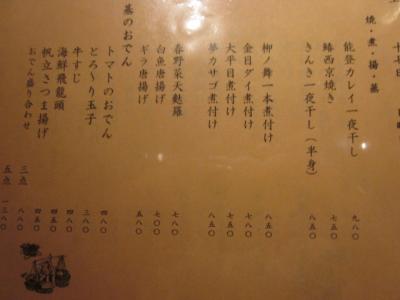 焼・煮・揚・蒸
能登カレイ一夜干し 九八〇
鰆西京焼 七五〇
きんき一夜干し(半身) 八五〇
柳ノ舞一本煮付け 八五〇
金目ダイ煮付け 七八〇
大平目煮付け 七五〇
夢カサゴ煮付け 八五〇
春野菜天麩羅 七八〇
白魚唐揚げ 七〇〇
ギラ唐揚げ 五八〇
蒸のおでん
トマトのおでん 四八〇
とろ〜り玉子 三八〇
牛すじ 四八〇
海鮮飛龍頭 四五〇
帆立さつま揚げ 四五〇
おでん盛り合わせ 三点 八八〇
五点 一三八〇